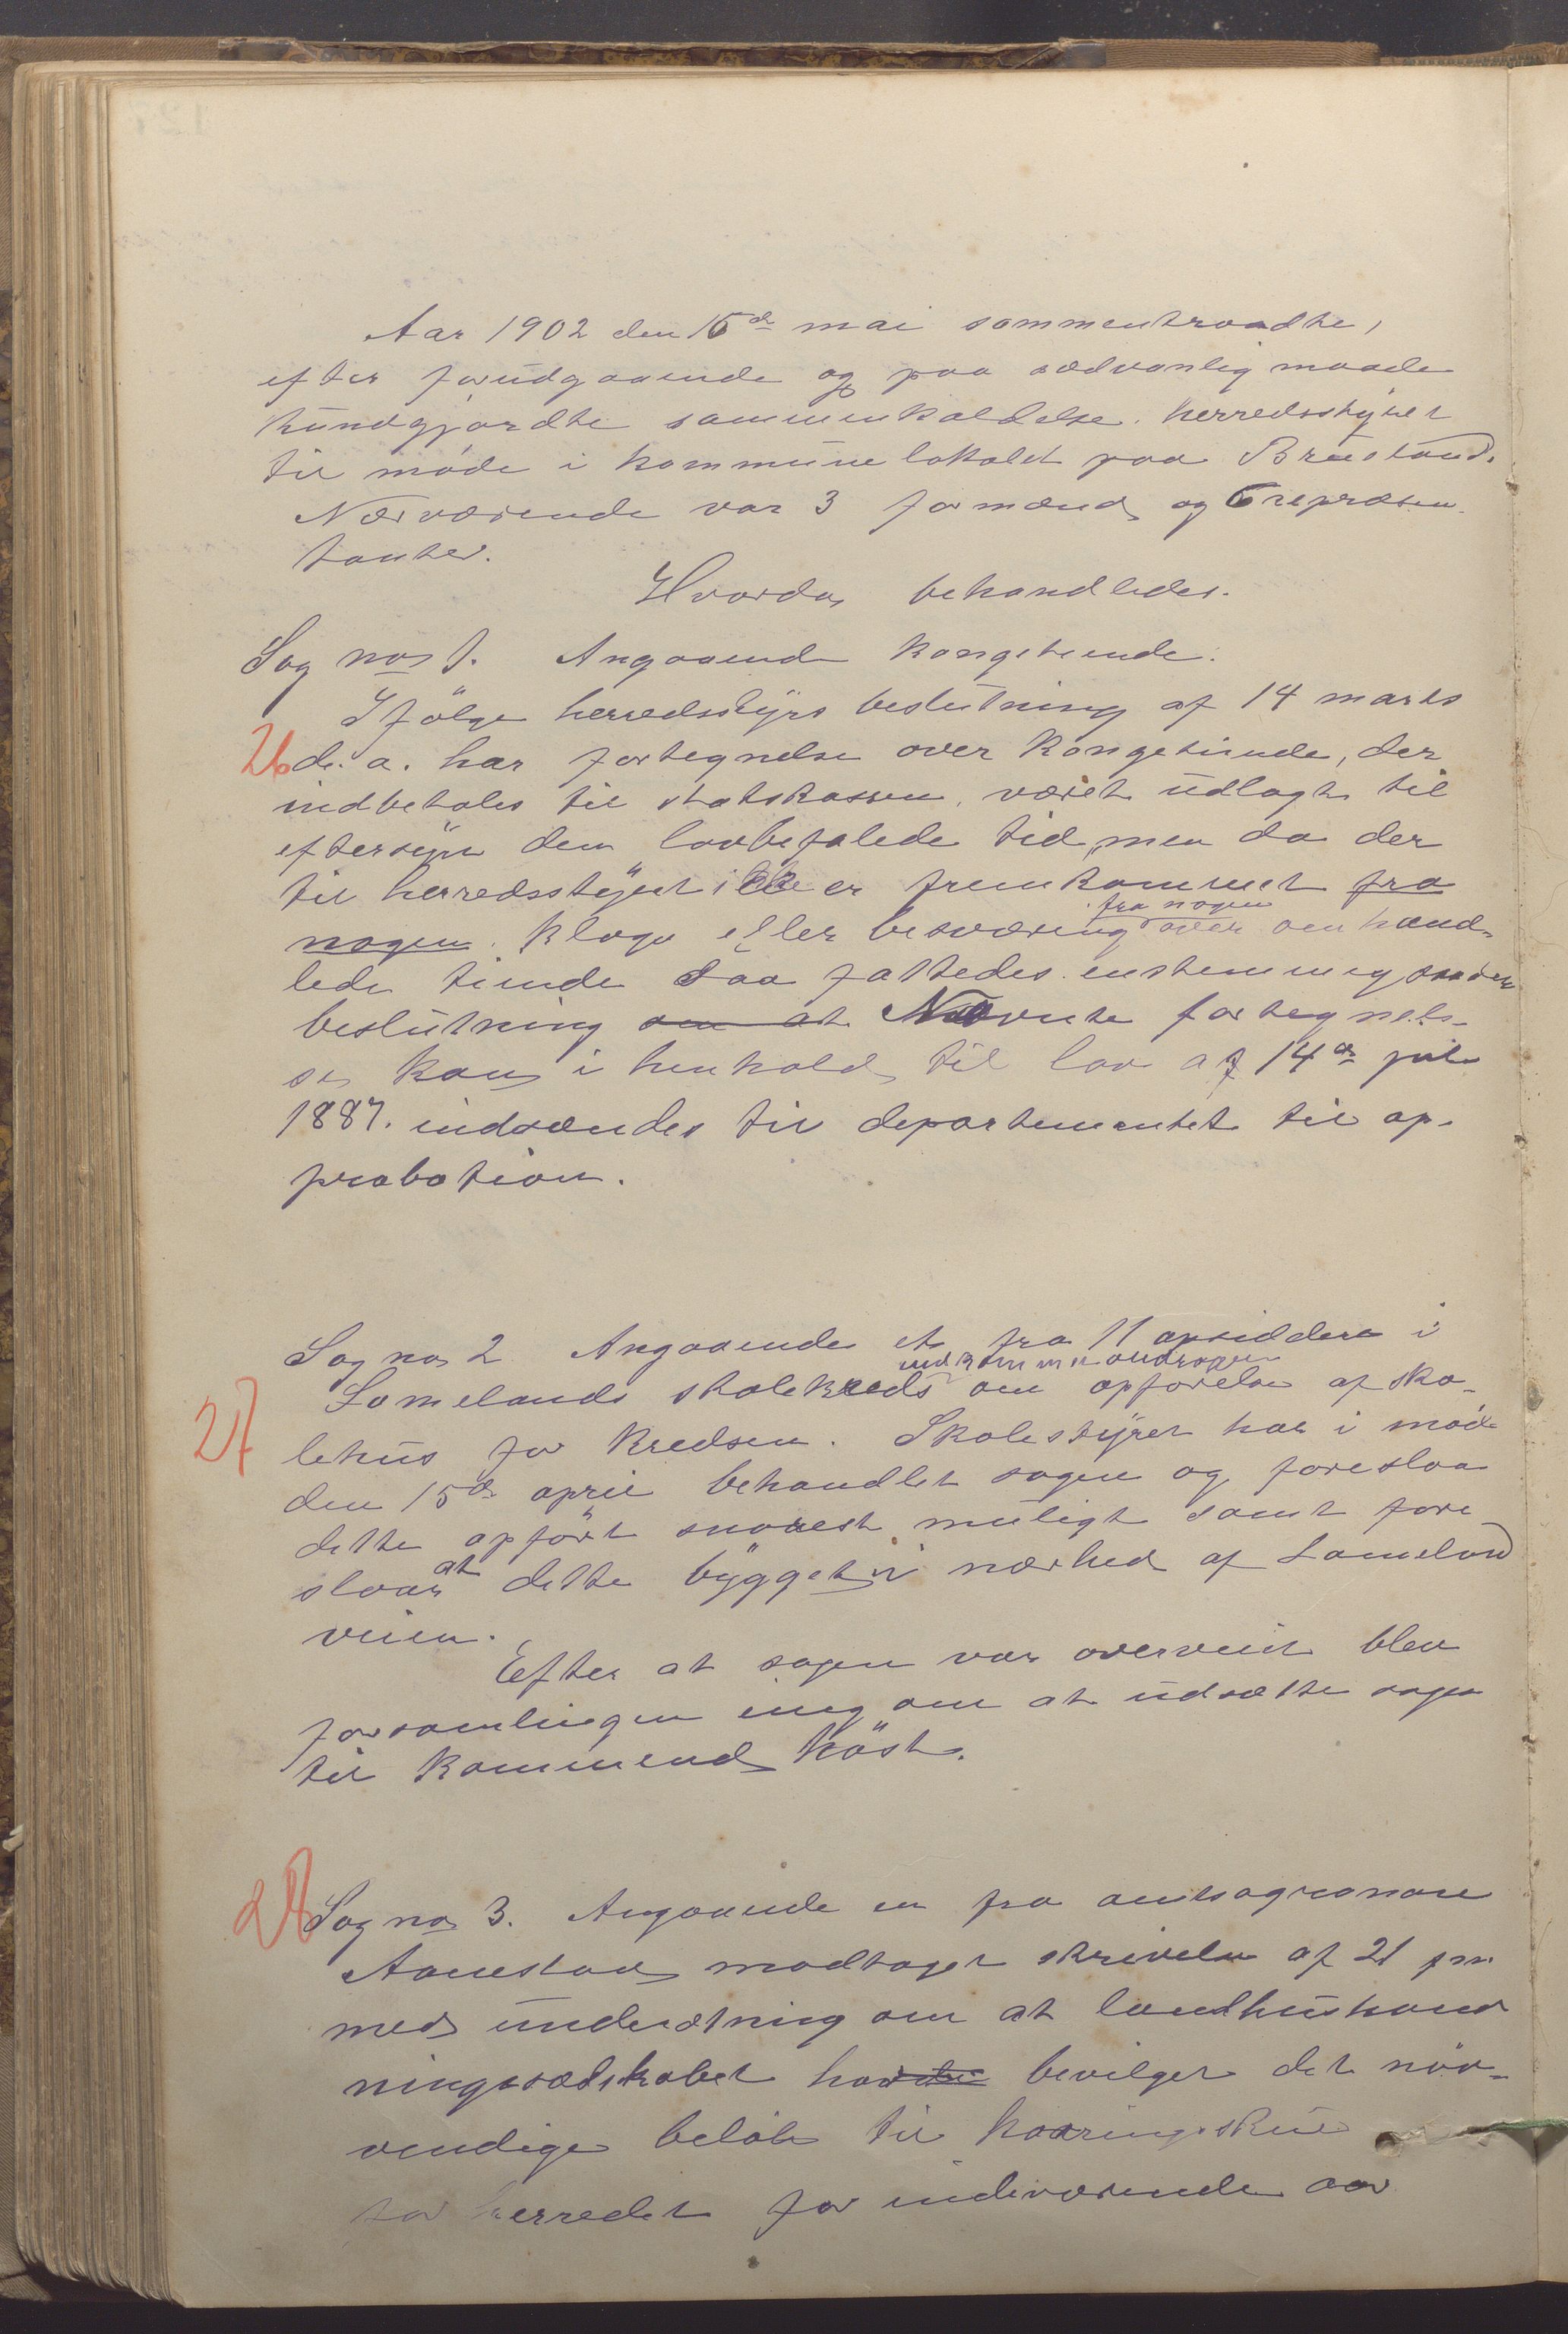 Aar 1902 den 15de mai sammentraadte,
efter forudgaaende og paa sædvanlig maade
kundgjordte sammenkaldelse. herredsstyret
til møde i kommunelokalet paa Bruestand.
Nærværende var 3 formænd og 6 repræsen-
tanter.
Hvorda behandledes.
Sag no 1. Angaaende kongetiende.
Ifölge herredsstyrs beslutning af 14 marts
26 d. a. har fortegnelse over kongetiende, der
indbetales til statskassen, været udlagt til
eftersyn den lovbefalede tid, men da der
til herredsstyret ikke er fremkommet fra
nogen. klage eller besværing fra nogen over omhand-
lede tiende saa fattedes enstemmig saaden
beslutning om at Nævnte fortegnels-
se kan i henhold til lov af 14de juli
1887. indsændes til departementet til ap-
probation.
Sag no 2 Angaaende et fra 11 opsiddere i
indkommen andragen
27 Lomelands skolekreds om opførelse af sko-
lehus for kredsen. Skolestyret har i møde
den 15de april behandlet sagen og foreslaa
dette opført snarest muligt samt fore-
slaar at dette bygget i nærhed af Lomeland
veien.
Efter at sagen var overveiet blev
forsamlingen enig om at udsætte sagen
til kommend höst.
28 Sag no 3. Angaaende en fra amtsagronom
Aanestad modtaget skrivelse af 21 f.m.
med underætning om at landhushand
ningssædskabet havde bevilget det nød-
vendige beløb til kaaringsskue
for herredet for indeværende aar